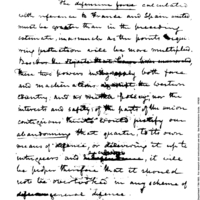 The defensive force calculated
with reference to France and Spain united
must be greater than in the preceding
estimate, inasmuch as the points requir
ing protection will be more multiplied.
these two powers both force
and machination the western
country, and as neither policy nor the
interests and safety of the parts of the union
contiguous justify our
abandoning that quarter, to its own
means of defence, or delivering it up to
intriguers and it will
be proper therefore that it should
not be overlooked in any scheme of
general defence.